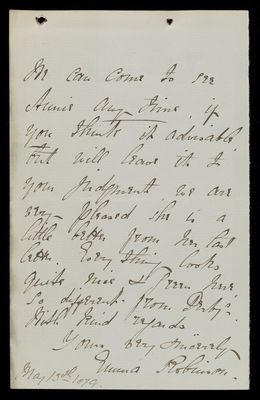 We can come to see
Annie any time, if
you think it advisable,
but will leave it to
your judgment, we are
very pleased she is a
little better from her last
letter. Every thing looks
quite nice & green here
so different from Derby.
With kind regards
Yours very sincerely
Emma Robinson.
May 13th 1879.